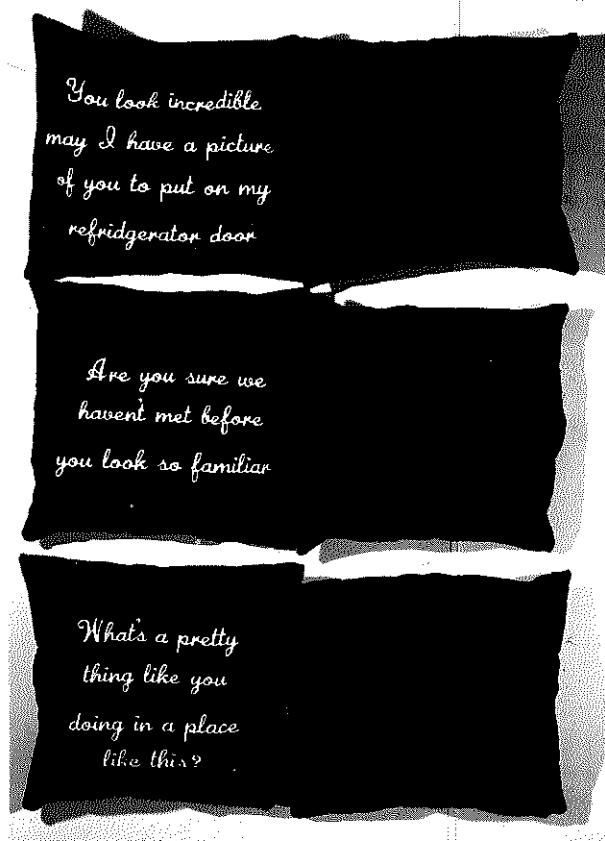 You look incredible
may I have a picture
of you to put on my
refridgerator door
Are you sure we
haven't met before
you look so familiar
What's a pretty
thing like you
doing in a place
like this?